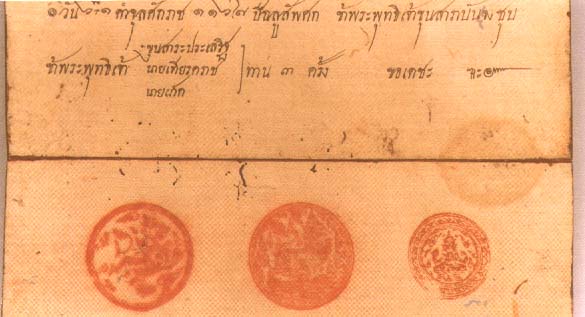 จุลศักราช ๑๑๖๗ ปีฉลูสัพศก ข้าพระพุทธิเจ้าขุนสารบันจงชุบ
ขุนสาระประเสริฐ
ข้าพระพุทธิเจ้า นายเทียรฆราช ทาน ๓ ครั้ง ขอเดชะ
นายเกด